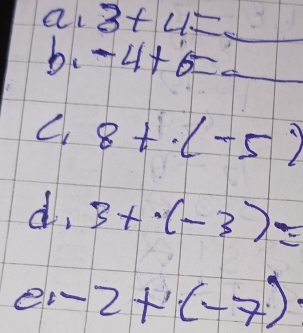 a. 3+4=___
b. -4+6=___
c. 8+(-5)
d. 3+(-3)=
e. -2+(-7)=